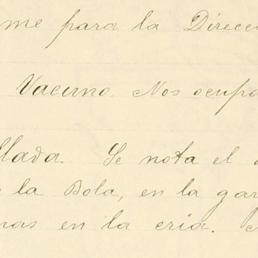 me para la Direcc
Vacuno. Nos ocupa
llada. Se nota el
la Bola, en la gar
nas en la cria.